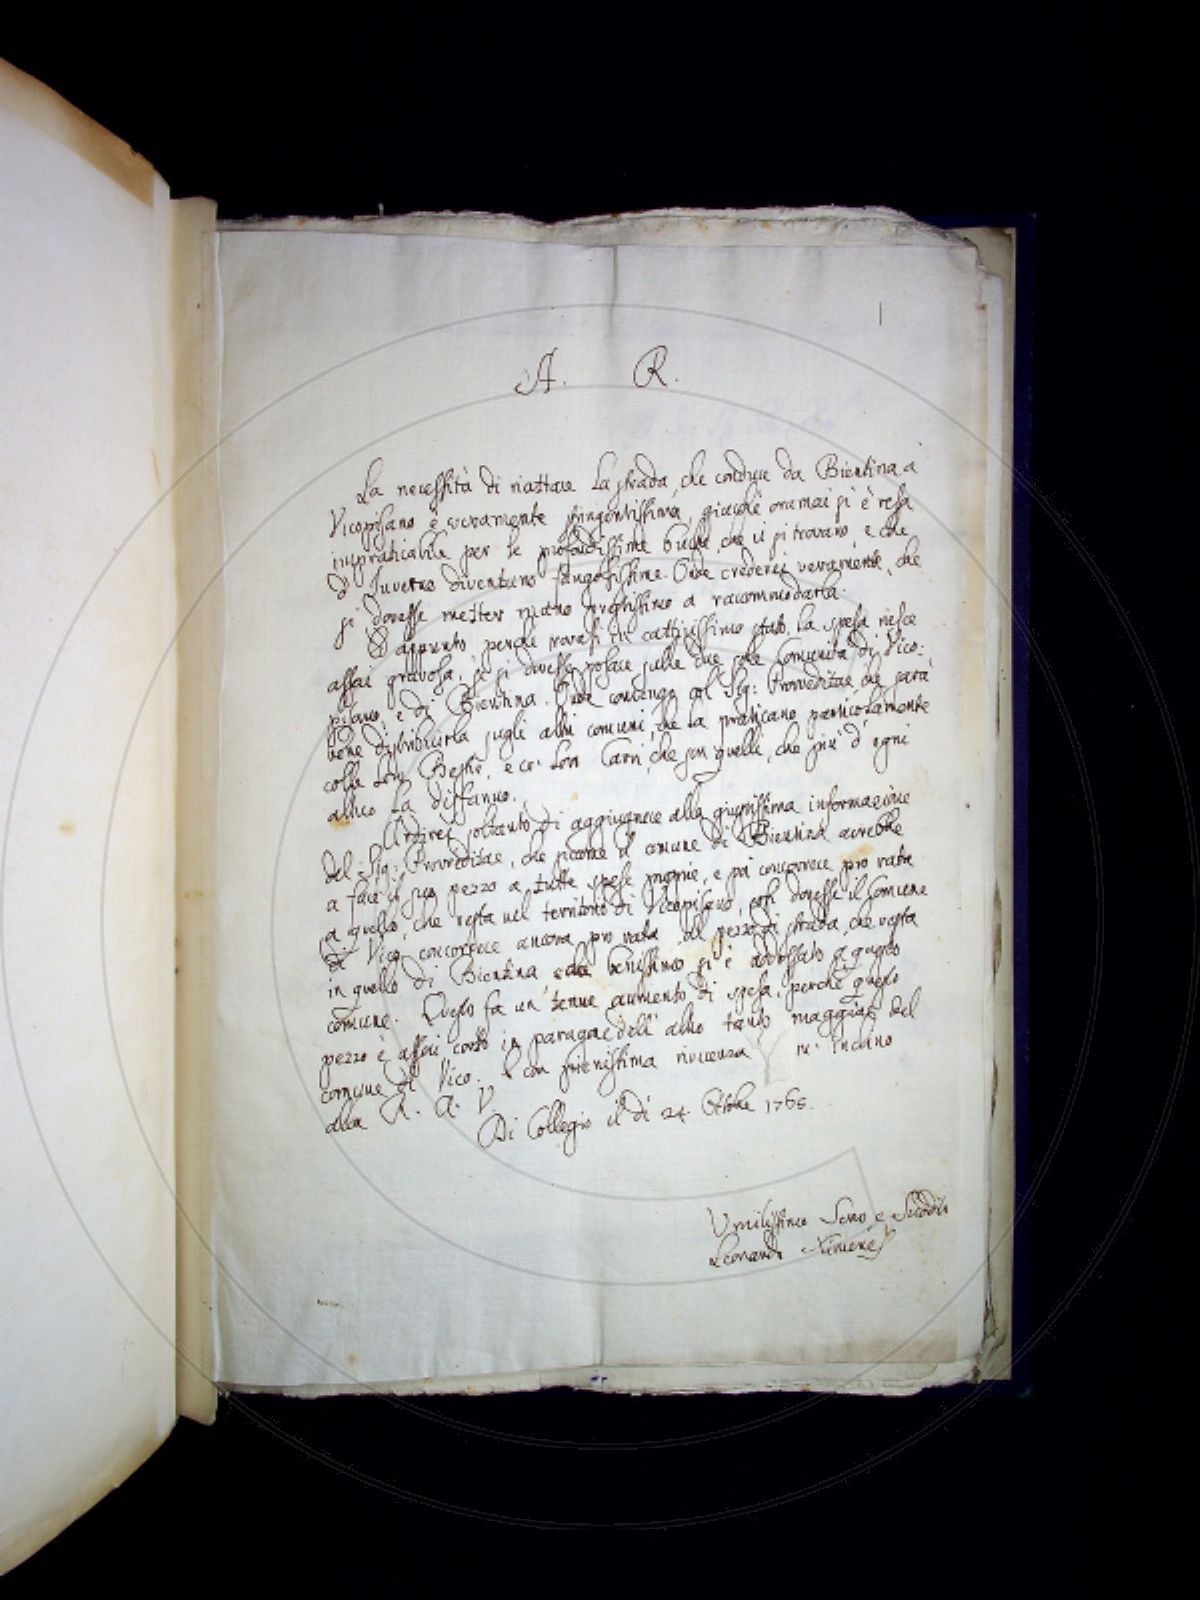 A. R.
La necessità di riattare la strada, che conduce da Bientina a
Vicopisano è veramente stringentissima, giacchè oramai si è resa
impraticabile per le profondissime buche, che ii si trovano, e che
d'Inverno diventano fangosissime. Onde crederei veramente, che
si dovesse metter mano prestissimo a raccommodarla.
E appunto perchè trovasi in cattivissimo stato, la spesa riesce
assai gravosa, se si dovesse posare sulle due sole Comunità di Vico-
pisano, e di Bientina. Onde convengo col Sig: Provveditore, che sarà
bene distribuirla sugli altri comuni, che la praticano particolarmente
colle loro Bestie, e co' loro Carri, che son quelli, che più d'ogni
altro la disfanno.
Ardirei soltanto di aggiugnere alla giustissima informazione
del Sig: Provveditore, che siccome il comune di Bientina avrebbe
a fare il suo pezzo a tutte spese proprie, e poi concorrere pro rata
a quello, che resta nel territorio di Vicopisano, così dovesse il Comune
di Vico concorrere ancora pro rata al pezzo di strada, che resta
in quello di Bientina e che benissimo si è addossato a questo
comune. Questo fa un tenue aumento di spesa, perchè questo
pezzo è assai corto in paragone dell'altro tanto maggiore del
comune di Vico. E con pienissima riverenza m'inchino
alla R. A. V.
Di Collegio il dì 24 Ottobre 1765.
Umilissimo Servo e Suddito
Leonardo Ximenes